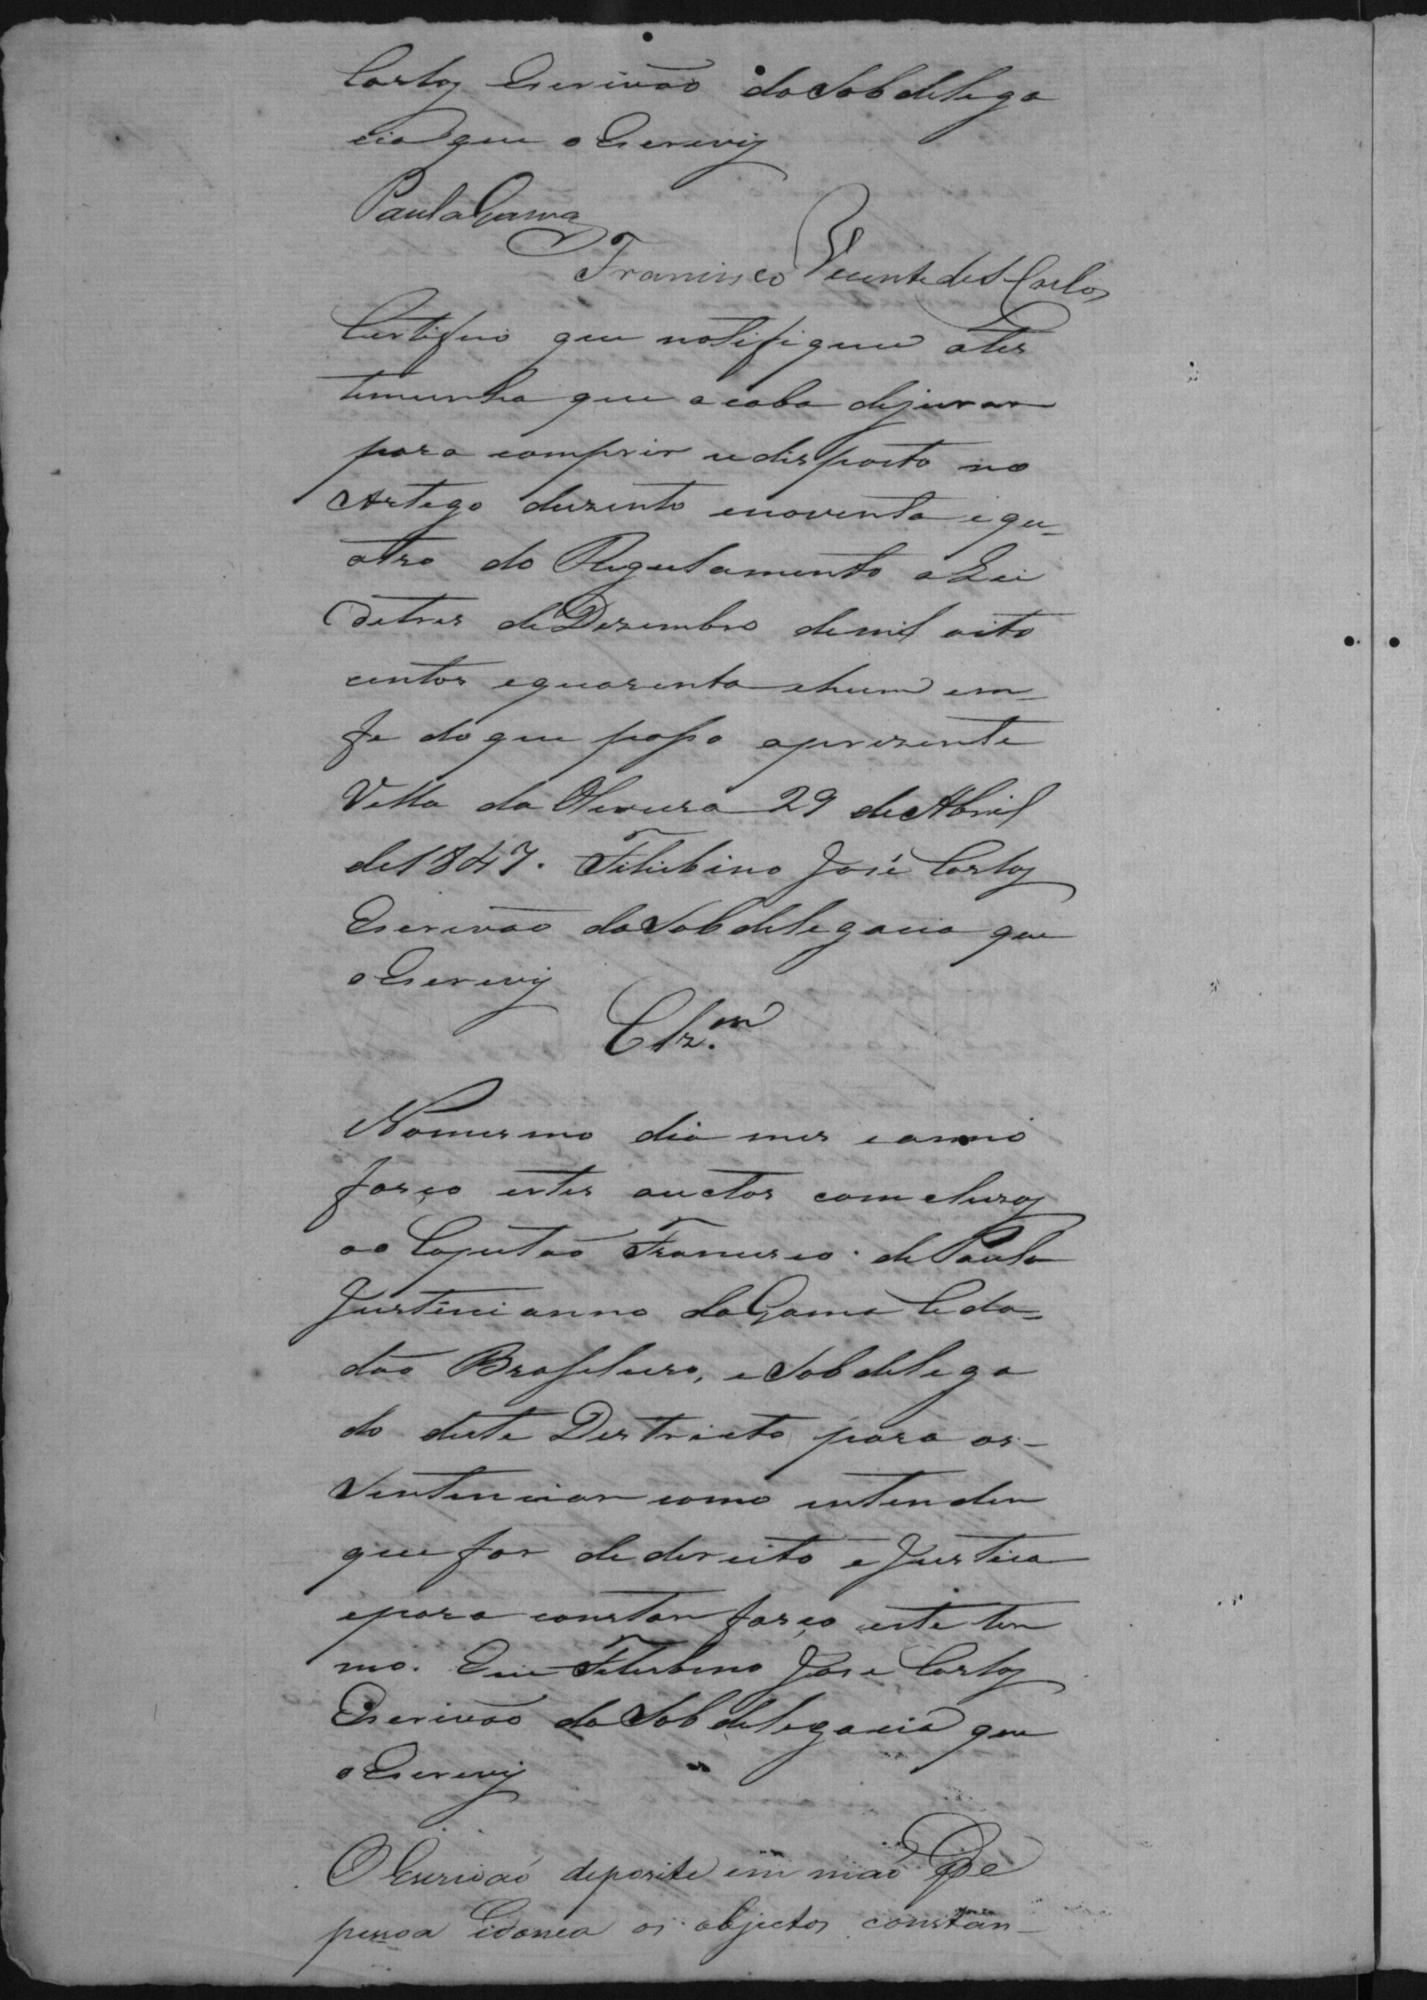 Cortes Escrivão da Sob delega
cia que o Escrevy
Paula Gama
Francisco Vicente de S. Carlos
Certifico que notifiquei a tes
temunha que acaba dejurar
para comprir odisposto no
Artego duzento enoventa e qu-
atro do Regulamento a Lei
detres de Dezembro demil oito
centos e quarenta ehum em
fe do que paso aprezente
Villa da Oliveira 29 de Abril
de 1847. José Cortes
Escrivão da Sob delegacia que
o Escrevy
Clz.m
Nomesmo dia mes e anno
faço estes auctos comcluzos
ao Capitão Francisco de Paula
Justinianno da Gama Cida-
dão Brasileiro, e Sob delega
do deste Destricto para os-
Sentenciar como entender
que for de dereito e Justica
epara constar faço este ter
mo. Eu José Cortes
Escrivão da Sob delegacia que
o Escrevy
O Escrivaõ deposite em maõ de
pessoa Eidonea os objectos constan-